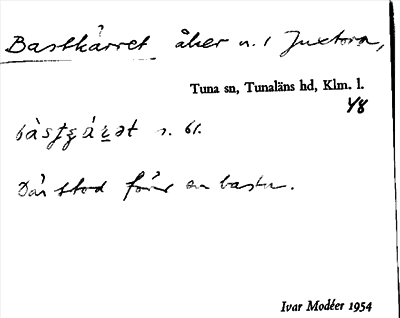 Bastkärret åker n. 1 Juxtorn,
Tuna sn, Tunaläns hd, Klm. l.
48
s. 61.
Där stod förr en bastu.
Ivar Modéer 1954